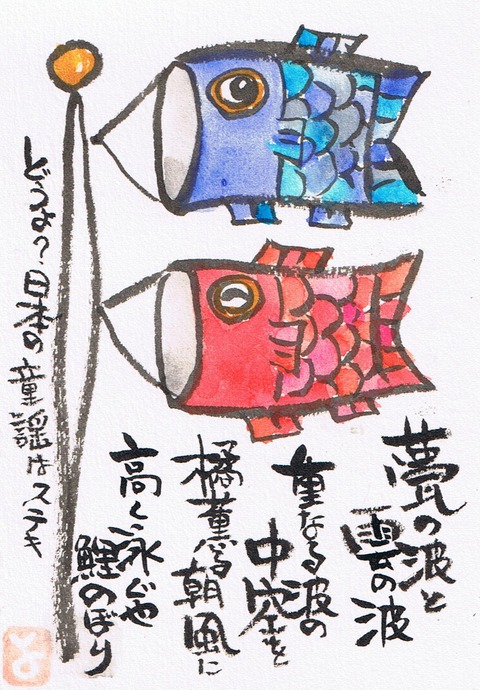 甍の波と
雲の波
重なる波の
中空を
橘薫る朝風に
高く泳ぐや
鯉のぼり
日本の童謡はステキ